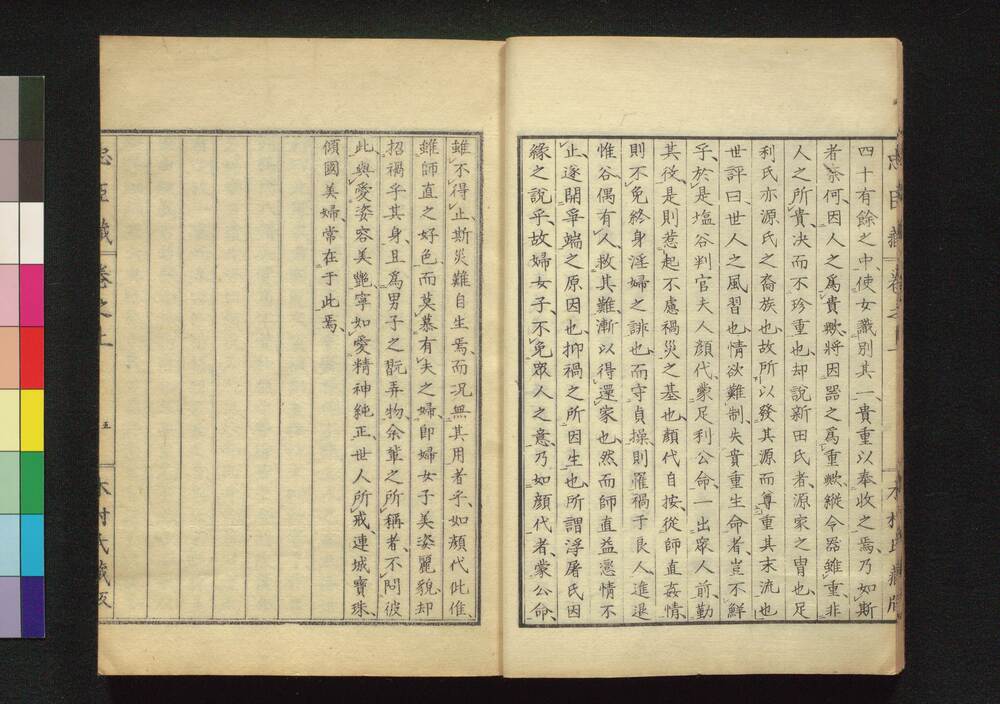 四十有餘之中使女識別其一貴重以奉收之焉乃如斯
者奈何因人之爲貴歟將因器之爲重歟縱令器雖重非
人之所貴决而不珍重也却說新田氏者源家之冑也足
利氏亦源氏之裔族也故所以發其源而尊重其末流也
世評曰世人之風習也情欲難制失貴重生命者豈不鮮
乎於是塩谷判官夫人顔代蒙足利公命一出眾人前勤
其役是則惹起不慮禍災之基也顔代自按從師直姦情
則不免終身淫婦之誹也而守貞操則罹禍于良人進退
惟谷偶有人救其難漸以得還家也然而師直益慁情不
止遂開爭端之原因也抑禍之所因生也所謂浮屠氏因
緣之說乎故婦女子不免眾人之意乃如顔代者蒙公命
雖不得止斯災難自生焉而况無其用者乎如顔代此倠
雖師直之好色而莫慕有夫之婦即婦女子美姿麗貌却
招禍乎其身且爲男子之翫弄物余輩之所稱者不問彼
此與愛姿容美艶寧如愛精神純正世人所戒連城寶珠
傾國美婦常在于此焉
忠臣藏 卷之上 五 木村氏藏版